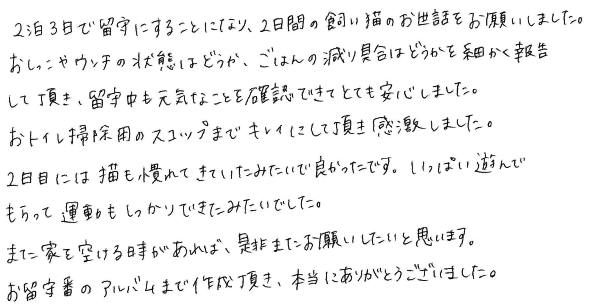 2泊3日で留守にすることになり、2日間の飼い猫のお世話をお願いしました。
おしっこやウンチの状態はどうか、ごはんの減り具合はどうかを細かく報告
して頂き、留守中も元気なことを確認できてとても安心しました。
おトイレ掃除用のスコップまでキレイにして頂き感激しました。
2日目には猫も慣れてきていたみたいで良かったです。いっぱい遊んで
もらって運動もしっかりできたみたいでした。
また家を空ける時があれば、是非またお願いしたいと思います。
お留守番のアルバムまで作成頂き、本当にありがとうございました。